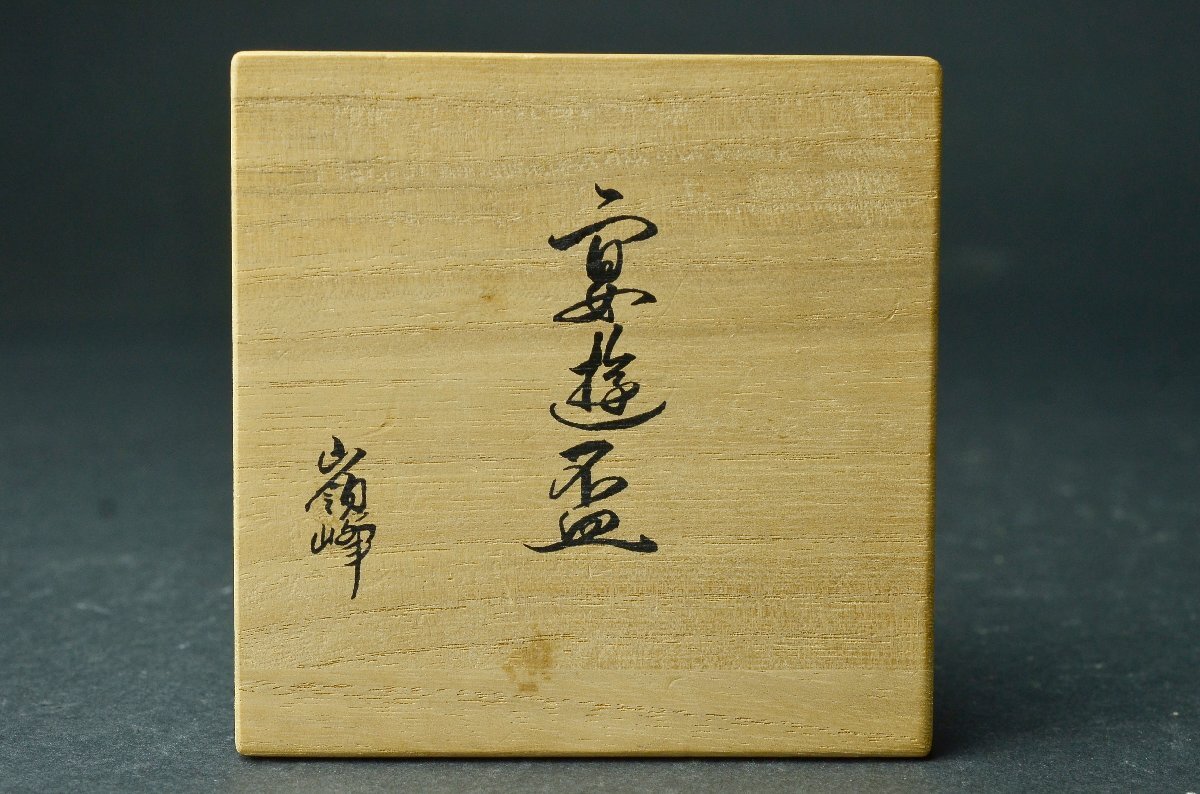 宴遊盃
嶺峰